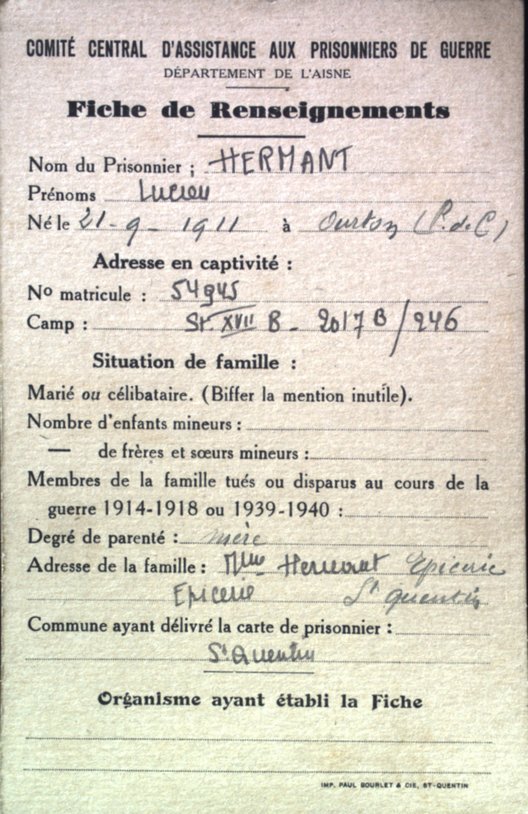 COMITÉ CENTRAL D'ASSISTANCE AUX PRISONNIERS DE GUERRE
DÉPARTEMENT DE L'AISNE
Fiche de Renseignements
Nom du Prisonnier : HERMANT
Prénoms Lucien
Né le 21-9-1911 à Ourton (P. de C)
Adresse en captivité :
No matricule : 54945
Camp : St. XVII B - 2017 B / 246
Situation de famille :
Marié ou célibataire. (Biffer la mention inutile).
Nombre d'enfants mineurs :
— de frères et sœurs mineurs :
Membres de la famille tués ou disparus au cours de la
guerre 1914-1918 ou 1939-1940 :
Degré de parenté : mère
Adresse de la famille : Mme Hermant Epicerie
Epicerie St Quentin
Commune ayant délivré la carte de prisonnier :
St Quentin
Organisme ayant établi la Fiche
IMP. PAUL BOURLET & CIE, ST-QUENTIN